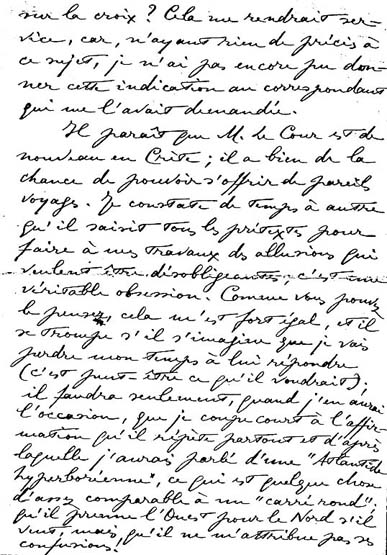 sur la croix ? Cela me rendrait ser-
vice, car, n'ayant rien de précis à
ce sujet, je n'ai pas encore pu don-
ner cette indication au correspondant
qui me l'avait demandée.
Il paraît que M. le Cour est de
nouveau en Crète ; il a bien de la
chance de pouvoir s'offrir de pareils
voyages. Je constate de temps à autre
qu'il saisit tous les prétextes pour
faire à mes travaux des allusions qui
veulent être désobligeantes ; c'est une
véritable obsession. Comme vous pouvez
le penser, cela m'est fort égal, et il
se trompe s'il s'imagine que je vais
perdre mon temps à lui répondre
(c'est peut-être ce qu'il voudrait) ;
il faudra seulement, quand j'en aurai
l'occasion, que je coupe court à l'affir-
mation qu'il répète partout et d'après
laquelle j'aurais parlé d'une "Atlantide
hyperboréenne", ce qui est quelque chose
d'assez comparable à un "carré rond" ;
qu'il prenne l'Ouest pour le Nord s'il
veut, mais qu'il ne m'attribue pas ses
confusions !